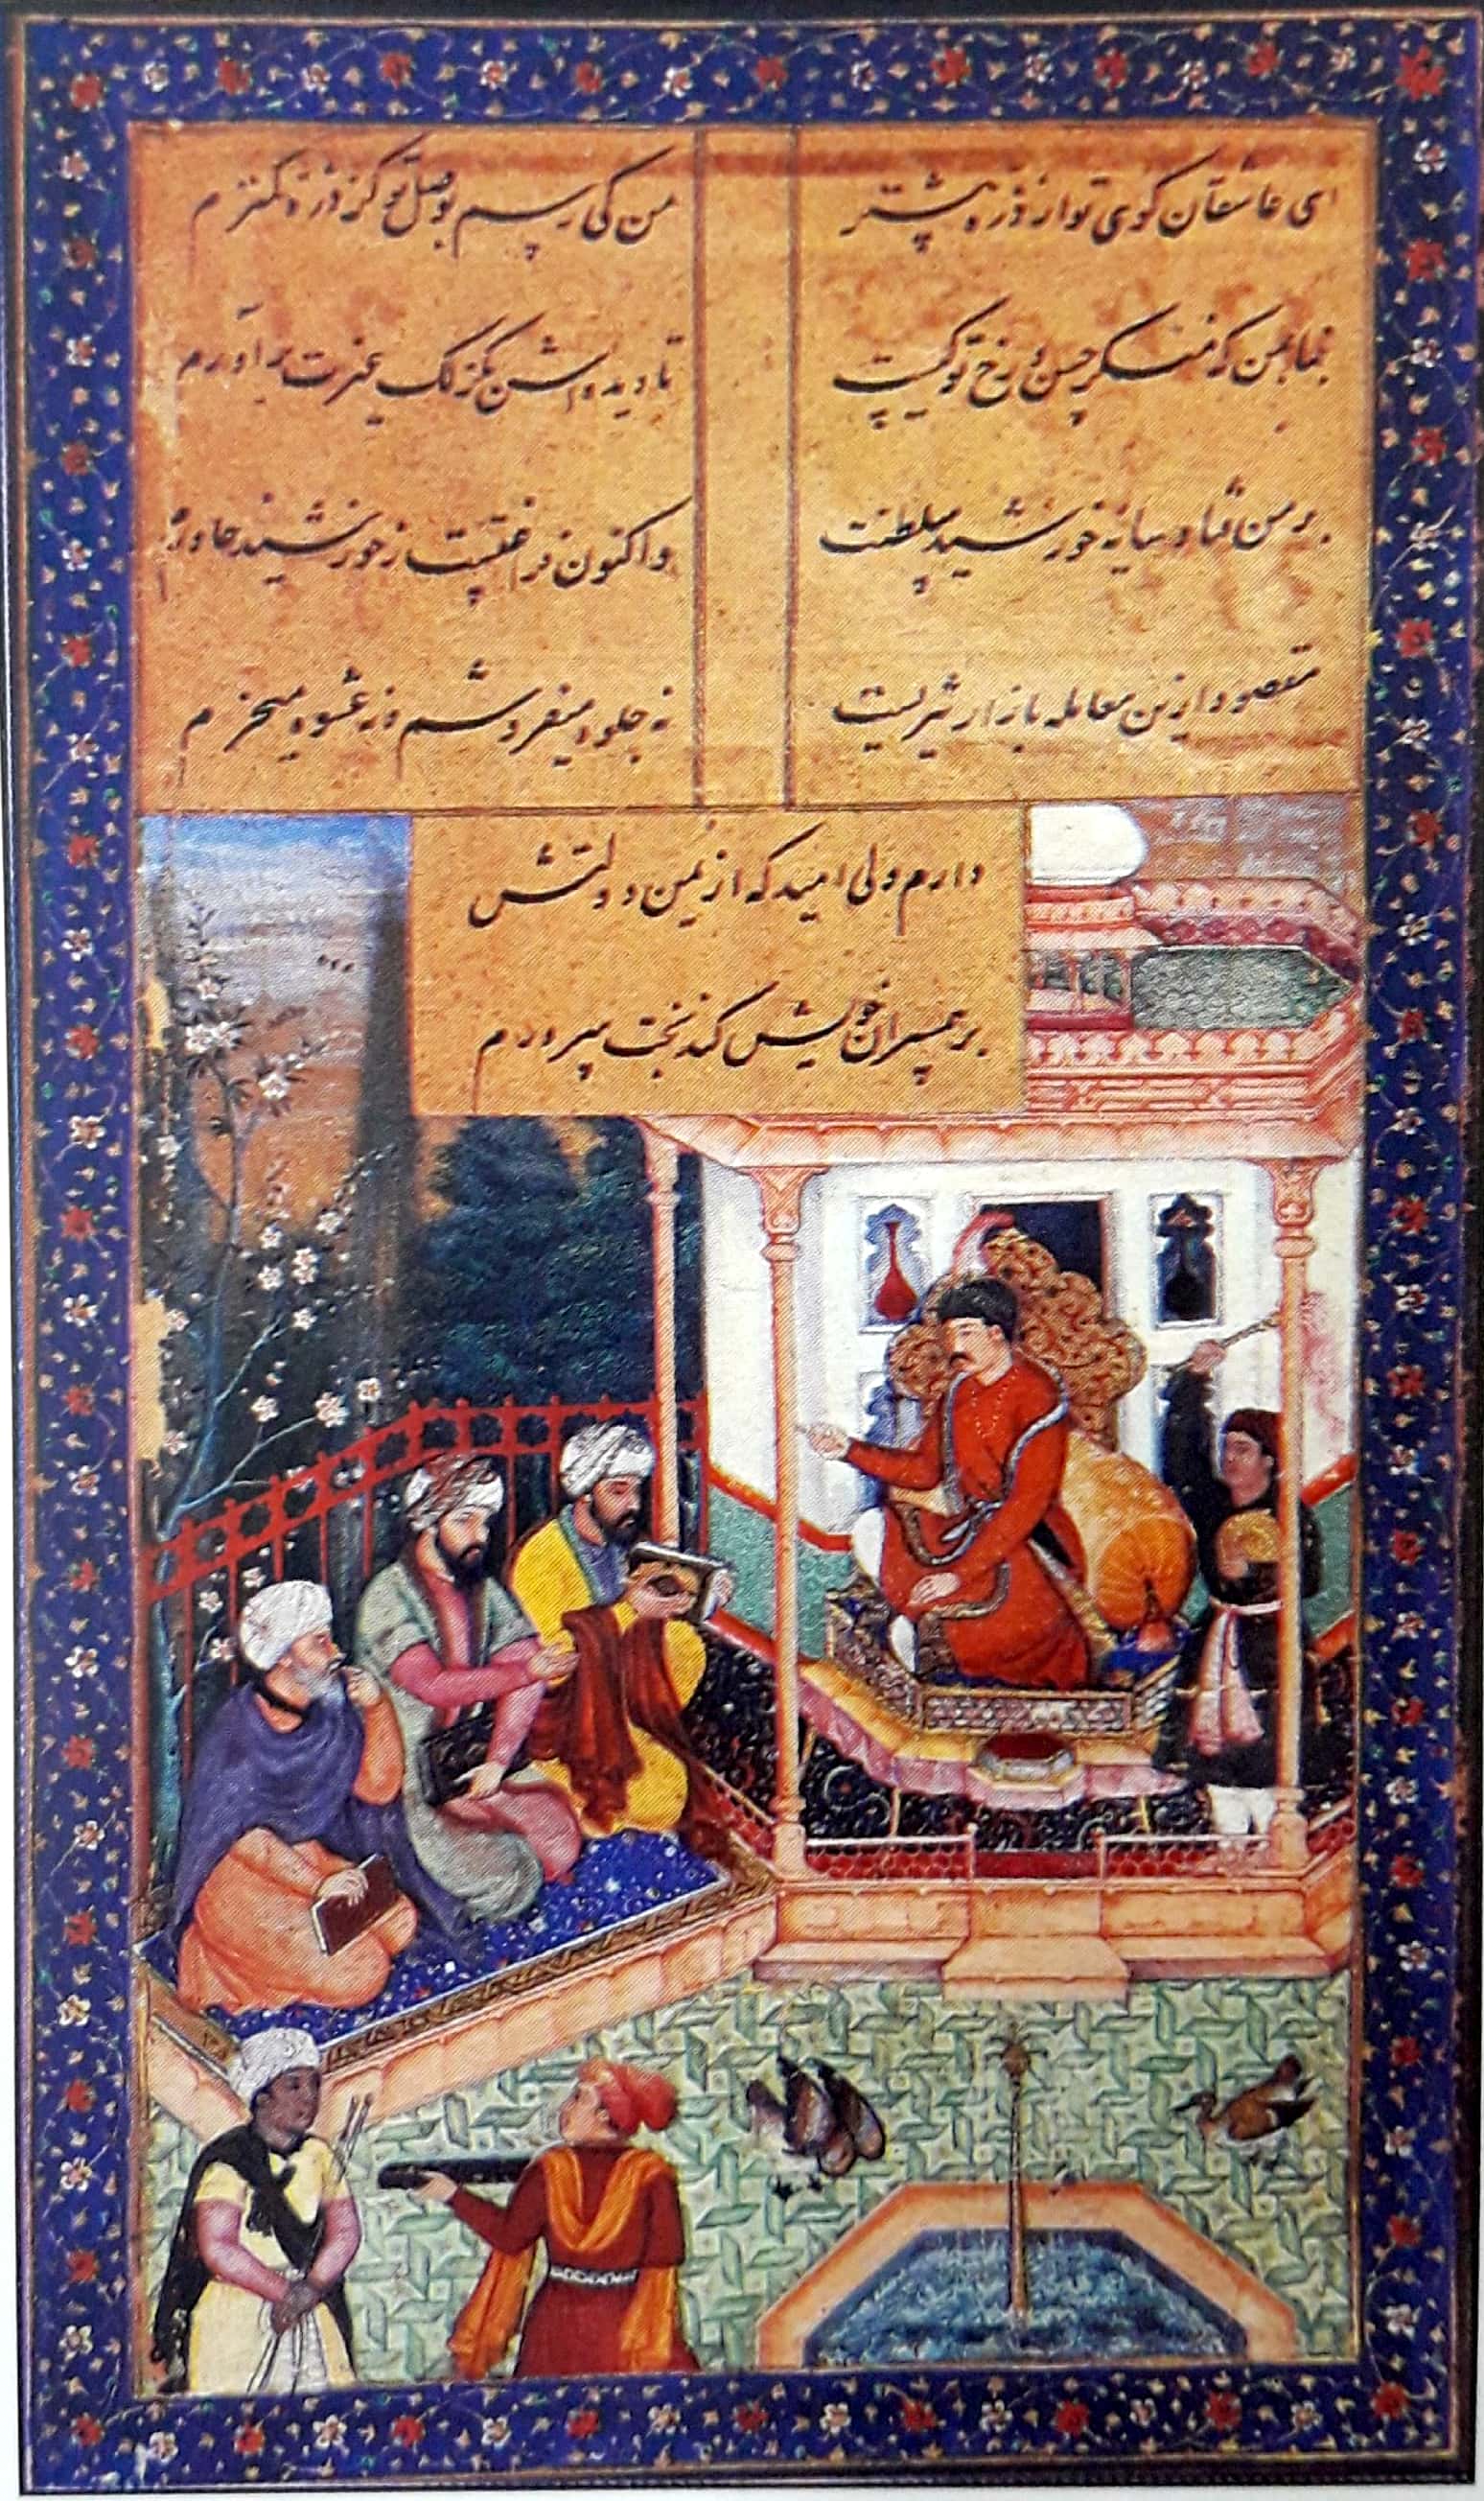 ای عاشقان کوی تو از ذره پیشتر
من کی رسم بوصل تو کز ذره کمترم
بنما بمن که منکر حسن رخ تو کیست
تا دیده‌اش بگزلک غیرت برآورم
بر من فتاد سایه خورشید سلطنت
واکنون فراغتست ز خورشید خاورم
مقصود ازین معامله بازار تیزیست
نه جلوه میفروشم و نه عشوه میخرم
دارم ولی امید که از یمن دولتش
بر همسران خویش کند بخت سرورم